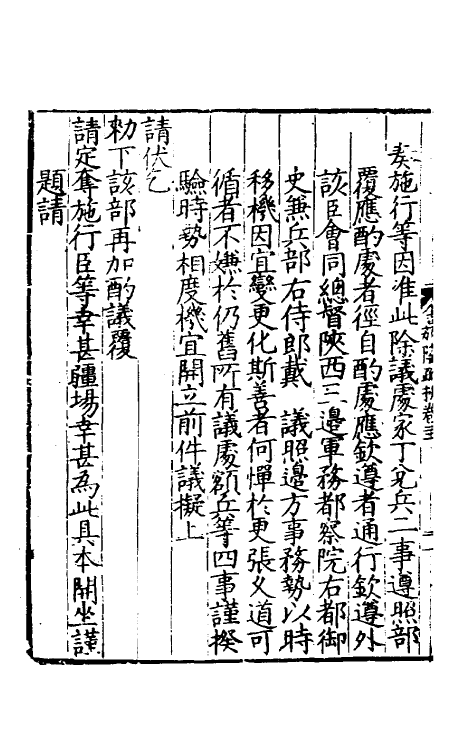 奏施行等因准此除議處家丁兌兵二事遵照部
覆應酌處者徑自酌處應欽遵者通行欽遵外
該臣會同總督陝西三邊軍務都察院右都御
史兼兵部右侍郎戴　議照邊方事務勢以時
移機因宜變更化斯善者何憚於更張义道可
循者不嫌於仍舊所有議處額兵等四事謹揆
驗時勢相度機宜開立前件議擬上
請伏乞
勑下該部再加酌議覆
請定奪施行臣等幸甚疆埸幸甚為此具本開坐謹
題請